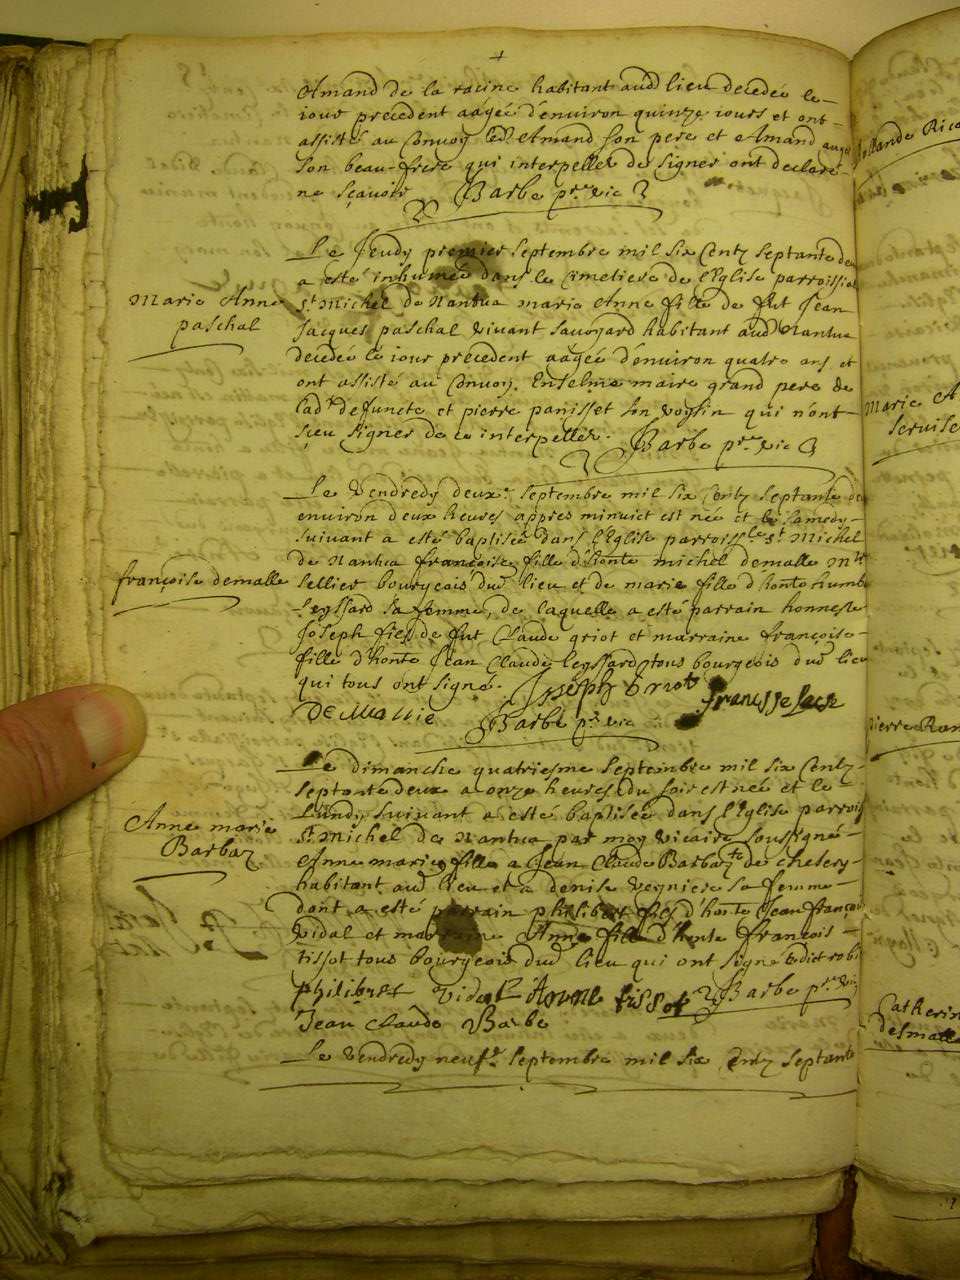 Amand de la racine habitant aud lieu decedee le
iour precedent aagée d'environ quinze iours et ont
assisté au Convoy led Amand son pere et Amand
son beau-frere qui interpellez de signer ont declaré
ne sçavoir Barbe pre vic
Marie Anne
paschal
Le Jeudy premier septembre mil six Centz septante de
a esté inhumée dans le Cimetiere de l'Eglise parroissial
st Michel de Nantua marie Anne fille de fut Jean
Jacques paschal vivant savoyard habitant aud Nantua
decedée le iour precedent aagée d'environ quatre ans et
ont assisté au Convoy. Enselme maire grand pere de
lad defuncte et pierre panisset son voysin qui n'ont
sçeu signer de ce interpellez. Barbe pre vic
françoise demalle
Le Vendredy deuxe septembre mil six Centz septante de
environ deux heures appres minuict est née et le samedy
suivant a esté baptisée dans l'Eglise parroissle st Michel
de Nantua françoise fille d'honte michel demalle mre
sellier bourgeois dud lieu et de marie fille d'honte humb
leyssard sa femme, de laquelle a esté parrain honneste
Joseph fils de fut Claude griot et marraine françoise
fille d'honte Jean Claude leyssard tous bourgeois dud lieu
qui tous ont signé. Joseph Griot
De Mallie Barbe pre vic
Anne marie
Barbaz
Le dimanche quatriesme septembre mil six Centz
septante deux a onze heures du soir est née et le
Lundy suivant a esté baptisée dans l'Eglise parrois
st Michel de Nantua par moy vicaire soussigné
Anne marie fille a Jean Claude Barbaz de chesery
habitant aud lieu et a denise veyniere sa femme
dont a esté parrain philibert fils d'honte Jean françois
Vidal et marraine Anne fille d'honte françois
tissot tous bourgeois dud lieu qui ont signé
philibert Vidal Anne tissot Barbe pre vic
Jean Claude Barbe
Le Vendredy neufe septembre mil six Centz septante
Marie A
pierre
Catherin
desmalle